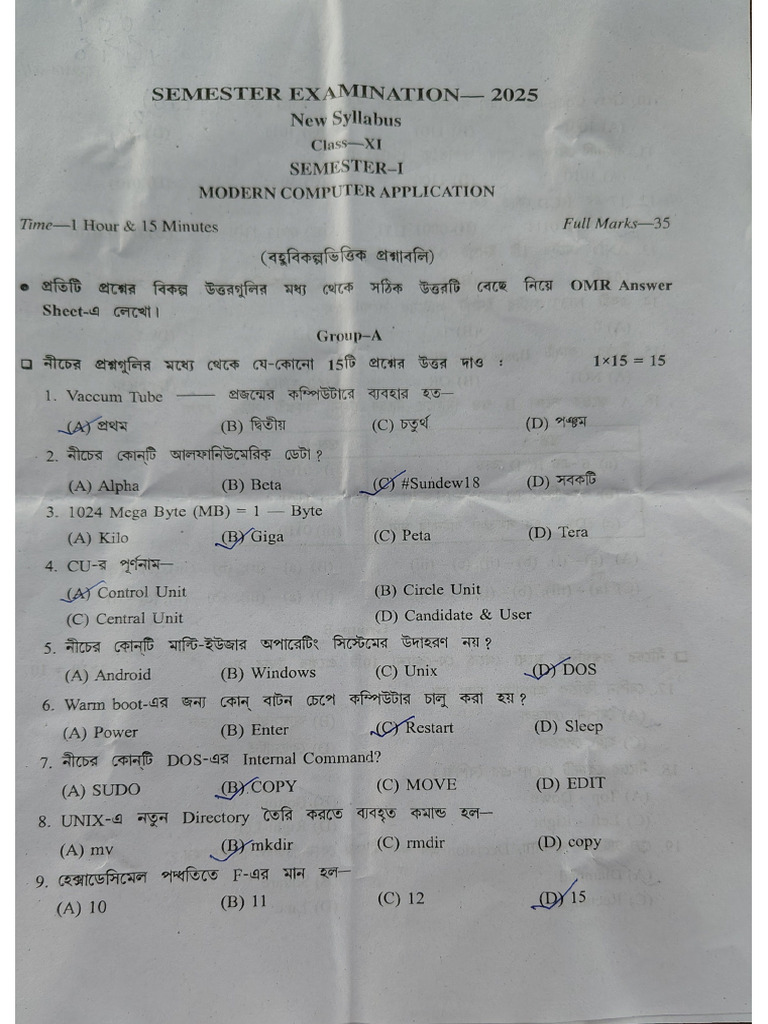 SEMESTER EXAMINATION— 2025
New Syllabus
Class—XI
SEMESTER–I
MODERN COMPUTER APPLICATION
Time—1 Hour & 15 Minutes Full Marks—35
(বহুবিকল্পভিত্তিক প্রশ্নাবলি)
● প্রতিটি প্রশ্নের বিকল্প উত্তরগুলির মধ্য থেকে সঠিক উত্তরটি বেছে নিয়ে OMR Answer
Sheet-এ লেখো।
Group–A
❑ নীচের প্রশ্নগুলির মধ্যে থেকে যে-কোনো 15টি প্রশ্নের উত্তর দাও : 1×15 = 15
1. Vaccum Tube —— প্রজন্মের কম্পিউটারে ব্যবহার হত—
(A) প্রথম (B) দ্বিতীয় (C) চতুর্থ (D) পঞ্চম
2. নীচের কোন্‌টি আলফানিউমেরিক ডেটা ?
(A) Alpha (B) Beta (C) #Sundew18 (D) সবকটি
3. 1024 Mega Byte (MB) = 1 — Byte
(A) Kilo (B) Giga (C) Peta (D) Tera
4. CU-র পূর্ণনাম—
(A) Control Unit (B) Circle Unit
(C) Central Unit (D) Candidate & User
5. নীচের কোন্‌টি মাল্টি-ইউজার অপারেটিং সিস্টেমের উদাহরণ নয় ?
(A) Android (B) Windows (C) Unix (D) DOS
6. Warm boot-এর জন্য কোন্ বাটন চেপে কম্পিউটার চালু করা হয় ?
(A) Power (B) Enter (C) Restart (D) Sleep
7. নীচের কোন্‌টি DOS-এর Internal Command?
(A) SUDO (B) COPY (C) MOVE (D) EDIT
8. UNIX-এ নতুন Directory তৈরি করতে ব্যবহৃত কমান্ড হল—
(A) mv (B) mkdir (C) rmdir (D) copy
9. হেক্সাডেসিমেল পদ্ধতিতে F-এর মান হল—
(A) 10 (B) 11 (C) 12 (D) 15